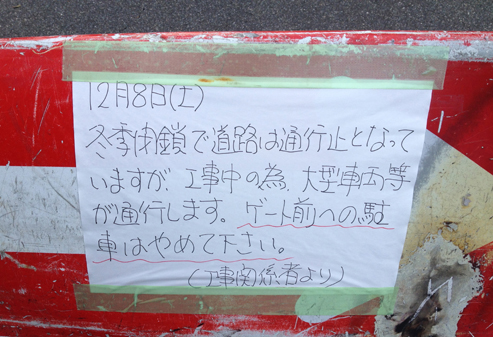 12月8日(土)
冬季閉鎖で道路は通行止となって
いますが、工事中の為、大型車両等
が通行します。ゲート前への駐
車はやめて下さい。
(工事関係者より)